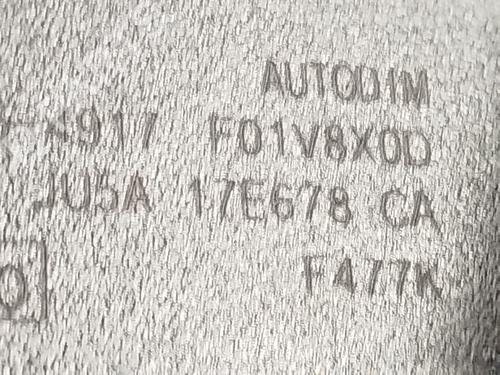 AUTODIM
4917 F01V8X0D
JU5A 17E678 CA
F477K
0